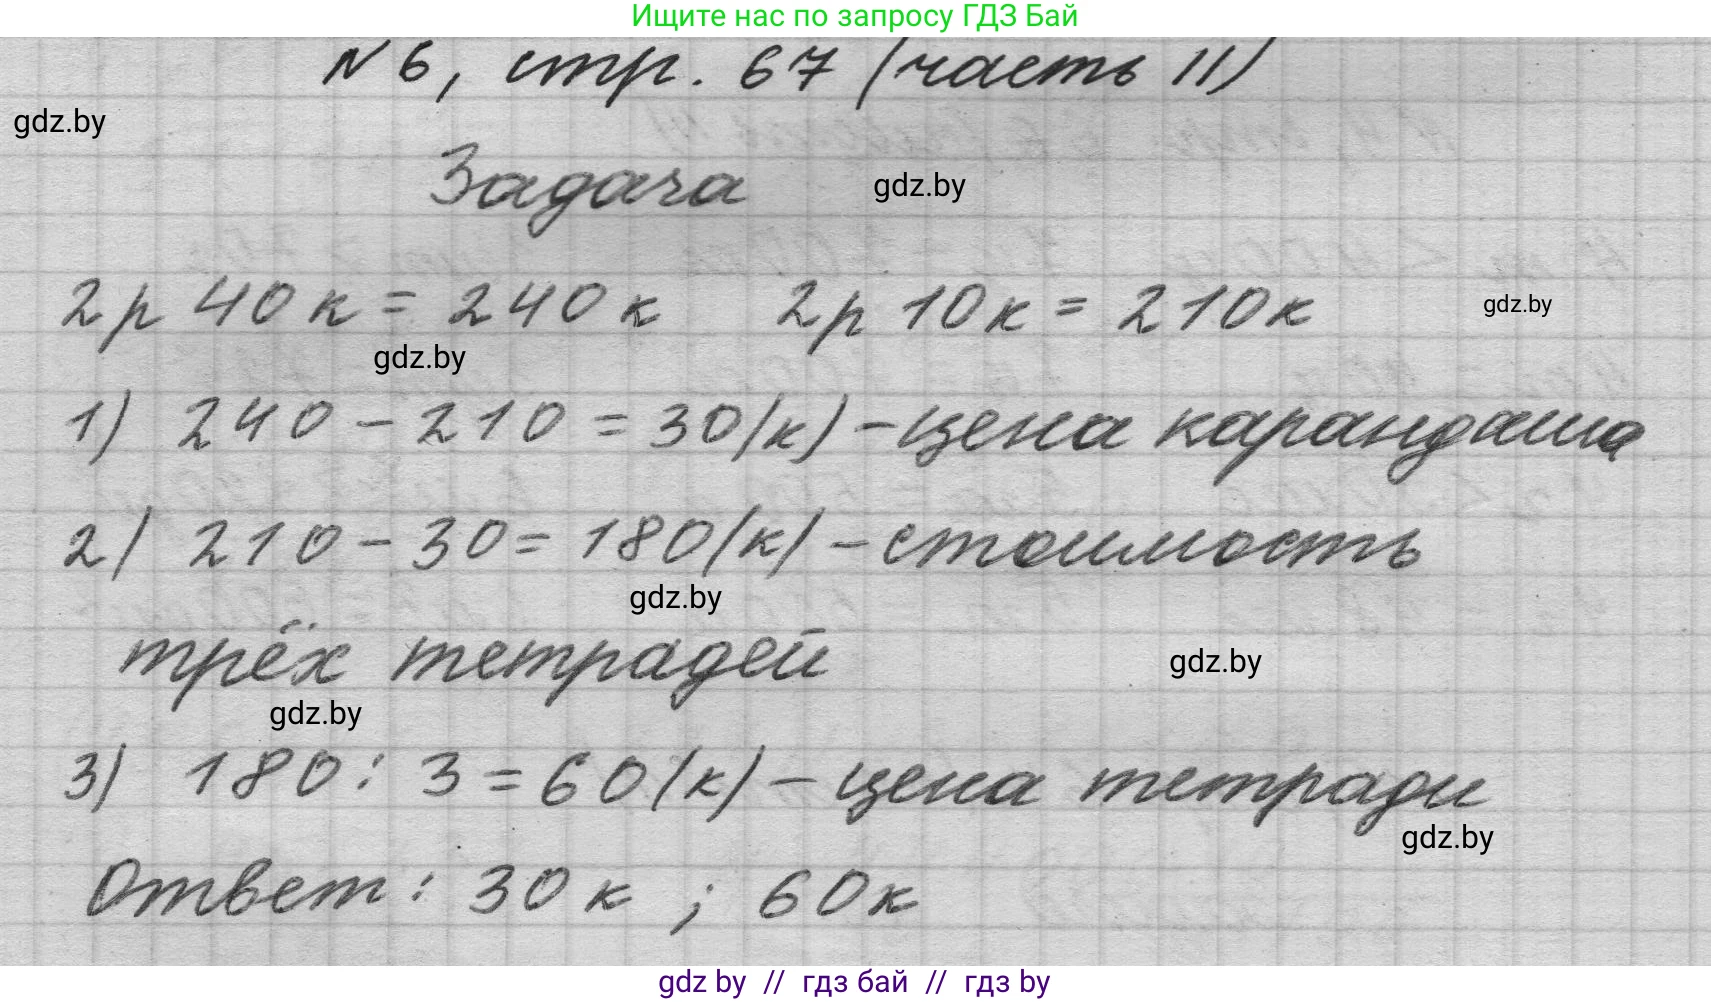 Ищите нас по запросу ГДЗ Бай
N 6, стр. 67 (часть II)
gdz.by
Задача
gdz.by
2р 40к = 240к 2р 10к = 210к
gdz.by
gdz.by
1) 240 - 210 = 30(к) - цена карандаша
2) 210 - 30 = 180(к) - стоимость
gdz.by
трёх тетрадей
gdz.by
gdz.by
3) 180 : 3 = 60(к) - цена тетради
gdz.by
Ответ: 30 к ; 60к
gdz by // гдз бай // гдз by